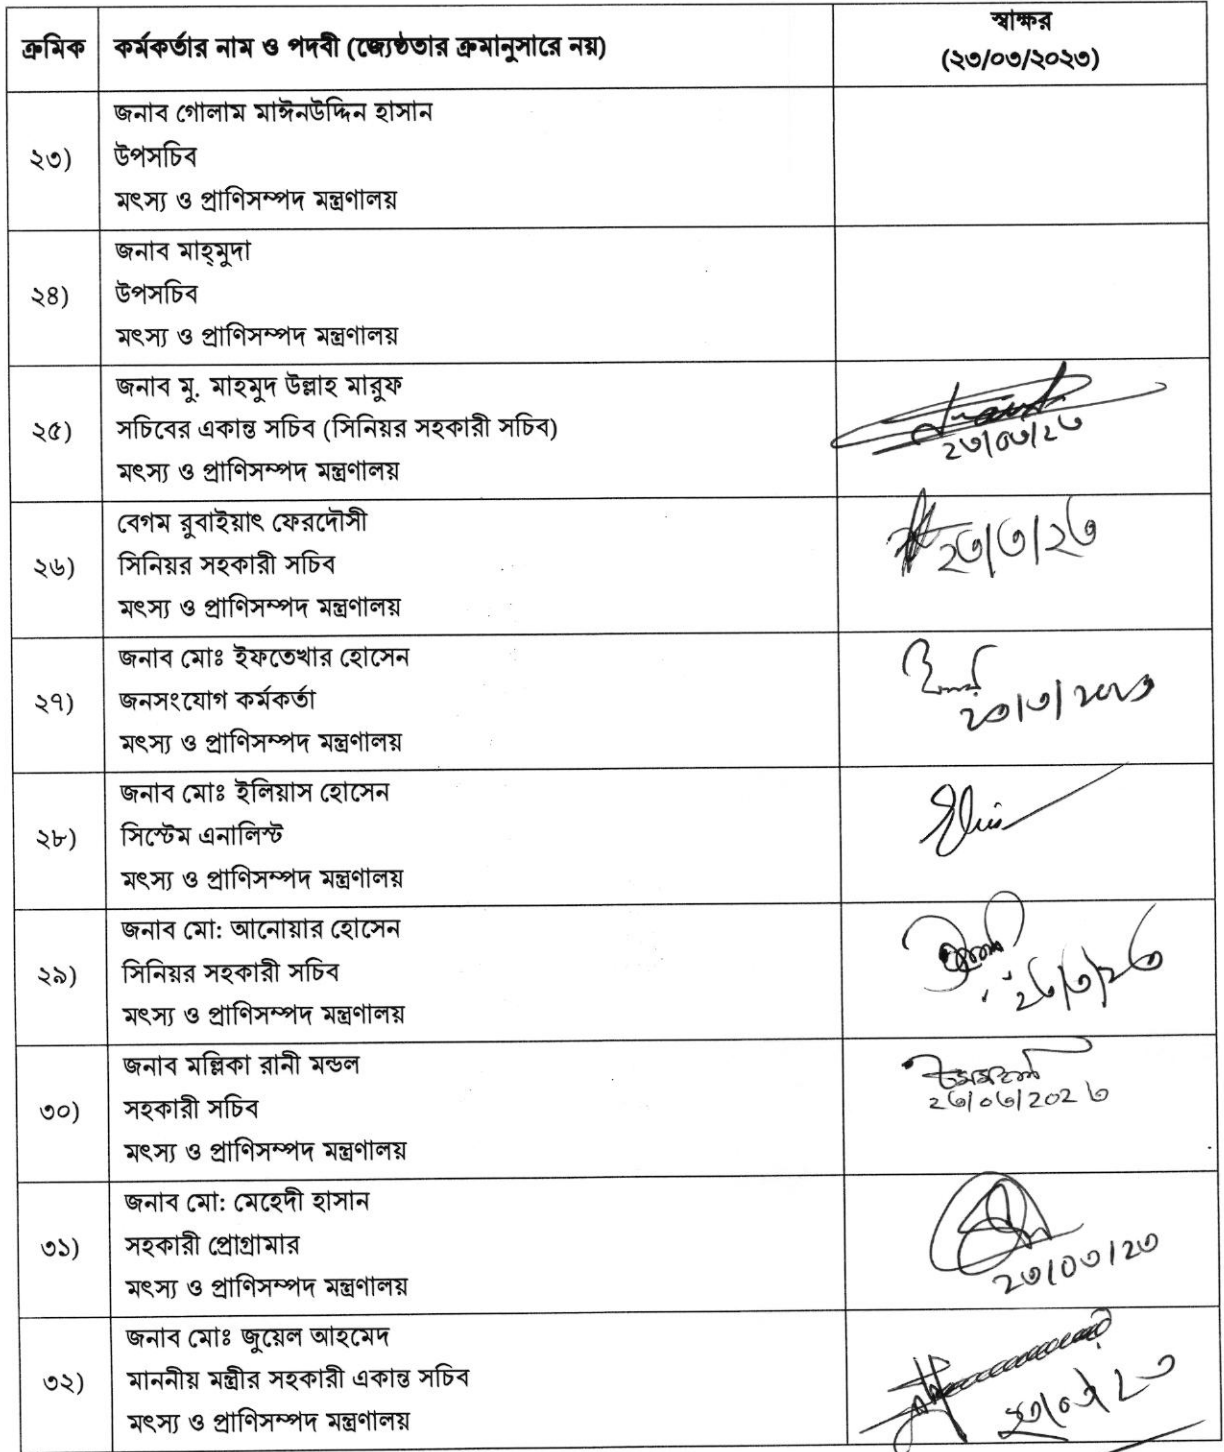 ক্রমিক
কর্মকর্তার নাম ও পদবী (জ্যেষ্ঠতার ক্রমানুসারে নয়)
স্বাক্ষর
(২৩/০৩/২০২৩)
২৩)
জনাব গোলাম মাঈনউদ্দিন হাসান
উপসচিব
মৎস্য ও প্রাণিসম্পদ মন্ত্রণালয়
২৪)
জনাব মাহ্‌মুদা
উপসচিব
মৎস্য ও প্রাণিসম্পদ মন্ত্রণালয়
২৫)
জনাব মু. মাহমুদ উল্লাহ মারুফ
সচিবের একান্ত সচিব (সিনিয়র সহকারী সচিব)
মৎস্য ও প্রাণিসম্পদ মন্ত্রণালয়
২৩/০৩/২৩
২৬)
বেগম রুবাইয়াৎ ফেরদৌসী
সিনিয়র সহকারী সচিব
মৎস্য ও প্রাণিসম্পদ মন্ত্রণালয়
২৩/৩/২৩
২৭)
জনাব মোঃ ইফতেখার হোসেন
জনসংযোগ কর্মকর্তা
মৎস্য ও প্রাণিসম্পদ মন্ত্রণালয়
২৩/৩/২০২৩
২৮)
জনাব মোঃ ইলিয়াস হোসেন
সিস্টেম এনালিস্ট
মৎস্য ও প্রাণিসম্পদ মন্ত্রণালয়
২৯)
জনাব মো: আনোয়ার হোসেন
সিনিয়র সহকারী সচিব
মৎস্য ও প্রাণিসম্পদ মন্ত্রণালয়
২৩/৩/২৩
৩০)
জনাব মল্লিকা রানী মন্ডল
সহকারী সচিব
মৎস্য ও প্রাণিসম্পদ মন্ত্রণালয়
২৩/০৩/২০২৩
৩১)
জনাব মো: মেহেদী হাসান
সহকারী প্রোগ্রামার
মৎস্য ও প্রাণিসম্পদ মন্ত্রণালয়
২৩/০৩/২৩
৩২)
জনাব মোঃ জুয়েল আহমেদ
মাননীয় মন্ত্রীর সহকারী একান্ত সচিব
মৎস্য ও প্রাণিসম্পদ মন্ত্রণালয়